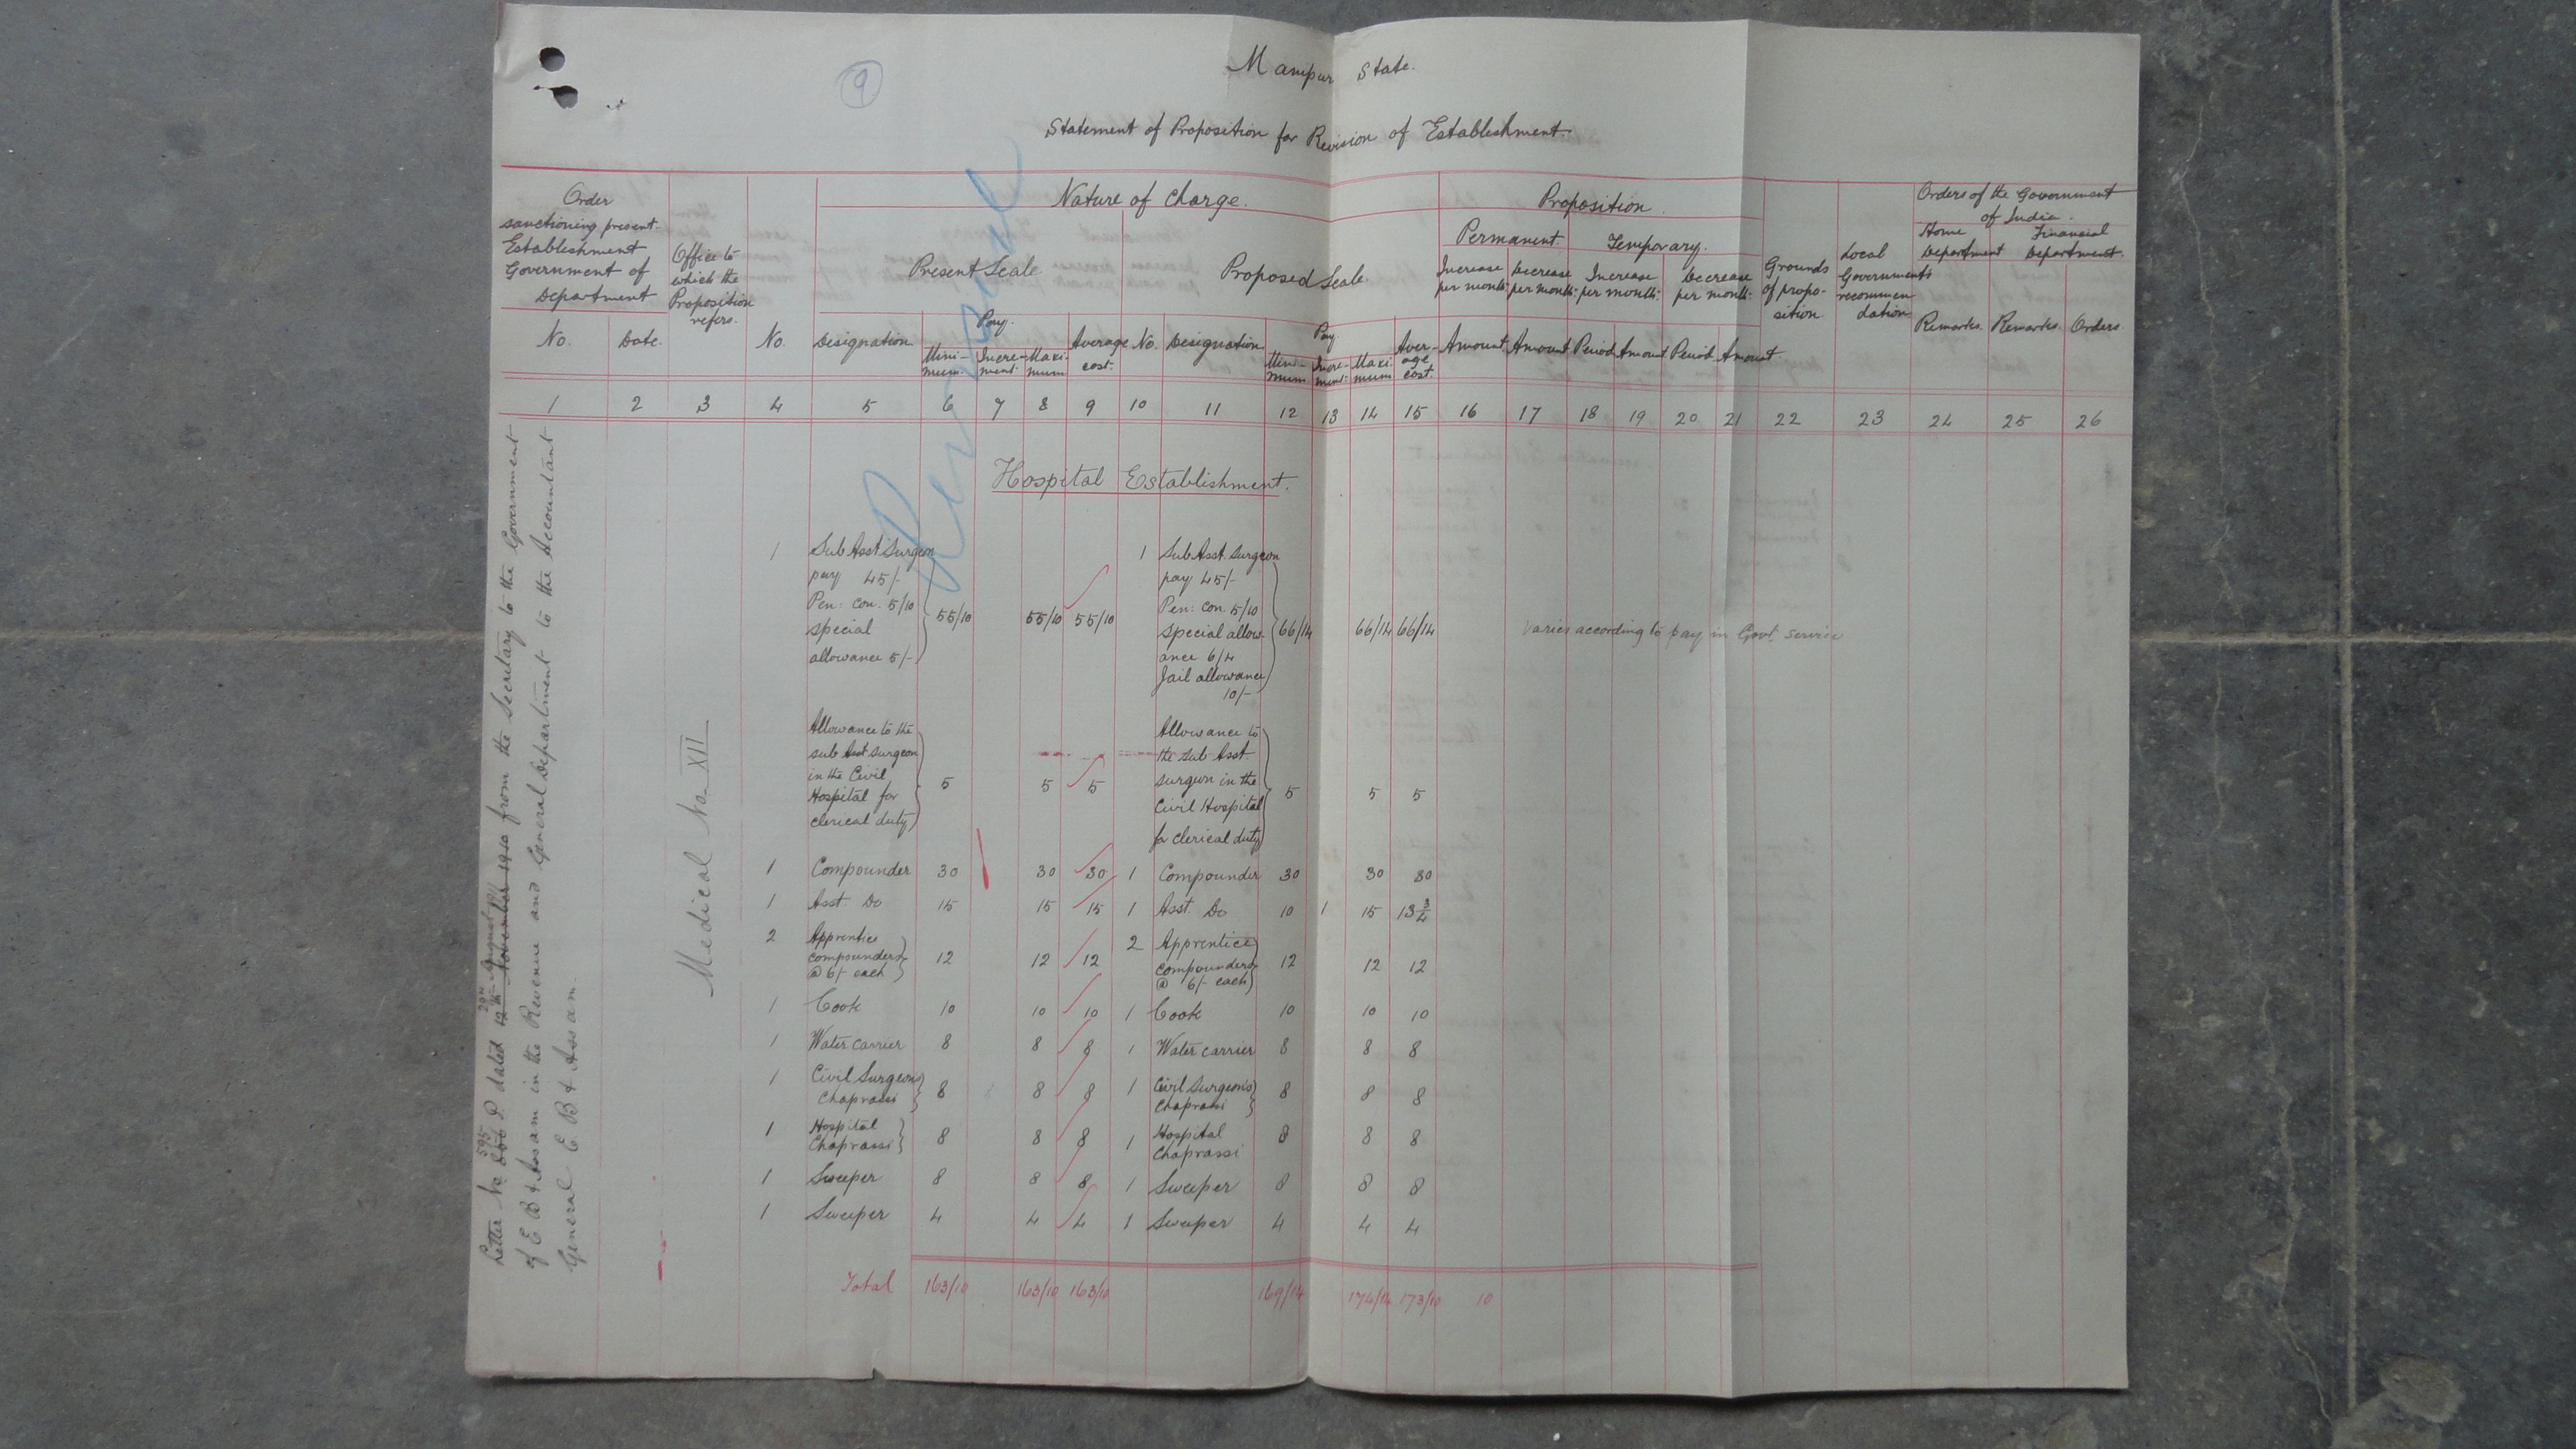 9
Manipur State.
Statement of Proposition for Revision of Establishment.
Order sanctioning present Establishment Government of Department
Office to which the Proposition refers.
Nature of Charge.
Present Scale
Proposed Scale.
Proposition.
Permanent.
Temporary.
Increase per month:
Decrease per month:
Increase per month:
Decrease per month:
Grounds of propo-sition.
Local Governments recommen-dation
Orders of the Government of India.
Home Department
Financial Department.
No. Date. No. Designation Pay. Mini-mum. Incre-ment. Maxi-mum Average cost. No. Designation Pay Mini-mum Incre-ment: Maxi-mum Aver-age cost. Amount Amount Period Amount Period Amount. Remarks. Remarks. Orders.
1 2 3 4 5 6 7 8 9 10 11 12 13 14 15 16 17 18 19 20 21 22 23 24 25 26
Letter No 595 P dated 29th August 1911 from the Secretary to the Government
of E B & Assam in the Revenue and General Department to the Accountant
General E B & Assam.
Medical No XII
Hospital Establishment.
1 Sub Asst Surgeon 1 Sub Asst. Surgeon
pay 45/- pay 45/-
Pen: con. 5/10 55/10 55/10 55/10 Pen: con. 5/10
special special allow- 66/14 66/14 66/14 Varies according to pay in Govt. service
allowance 5/- ance 6/4
Jail allowance
10/-
Allowance to the Allowance to
sub Asst surgeon the Sub Asst.
in the Civil 5 5 5 surgeon in the
Hospital for Civil Hospital 5 5 5
clerical duty for clerical duty
1 Compounder 30 30 30 1 Compounder 30 30 30
1 Asst. Do 15 15 15 1 Asst. Do 10 1 15 13 3/4
2 Apprentice 2 Apprentice
compounders 12 12 12 compounders 12 12 12
@ 6/- each @ 6/- each
1 Cook 10 10 10 1 Cook 10 10 10
1 Water carrier 8 8 8 1 Water carrier 8 8 8
1 Civil Surgeons 8 8 8 1 Civil Surgeon's 8 8 8
Chaprassi Chaprassi
1 Hospital 8 8 8 1 Hospital 8 8 8
Chaprassi Chaprassi
1 Sweeper 8 8 8 1 Sweeper 8 8 8
1 Sweeper 4 4 4 1 Sweeper 4 4 4
Total 163/10 163/10 163/10 169/14 174/14 173/10 10